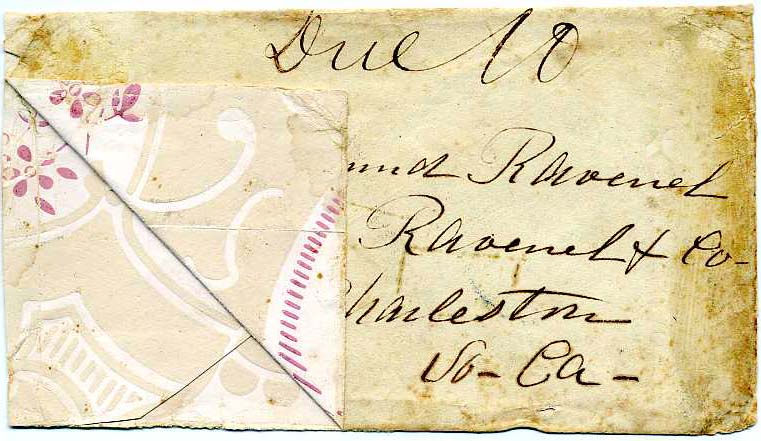 Due 10
mund Ravenel
Ravenel & Co-
Charleston
So- Ca-